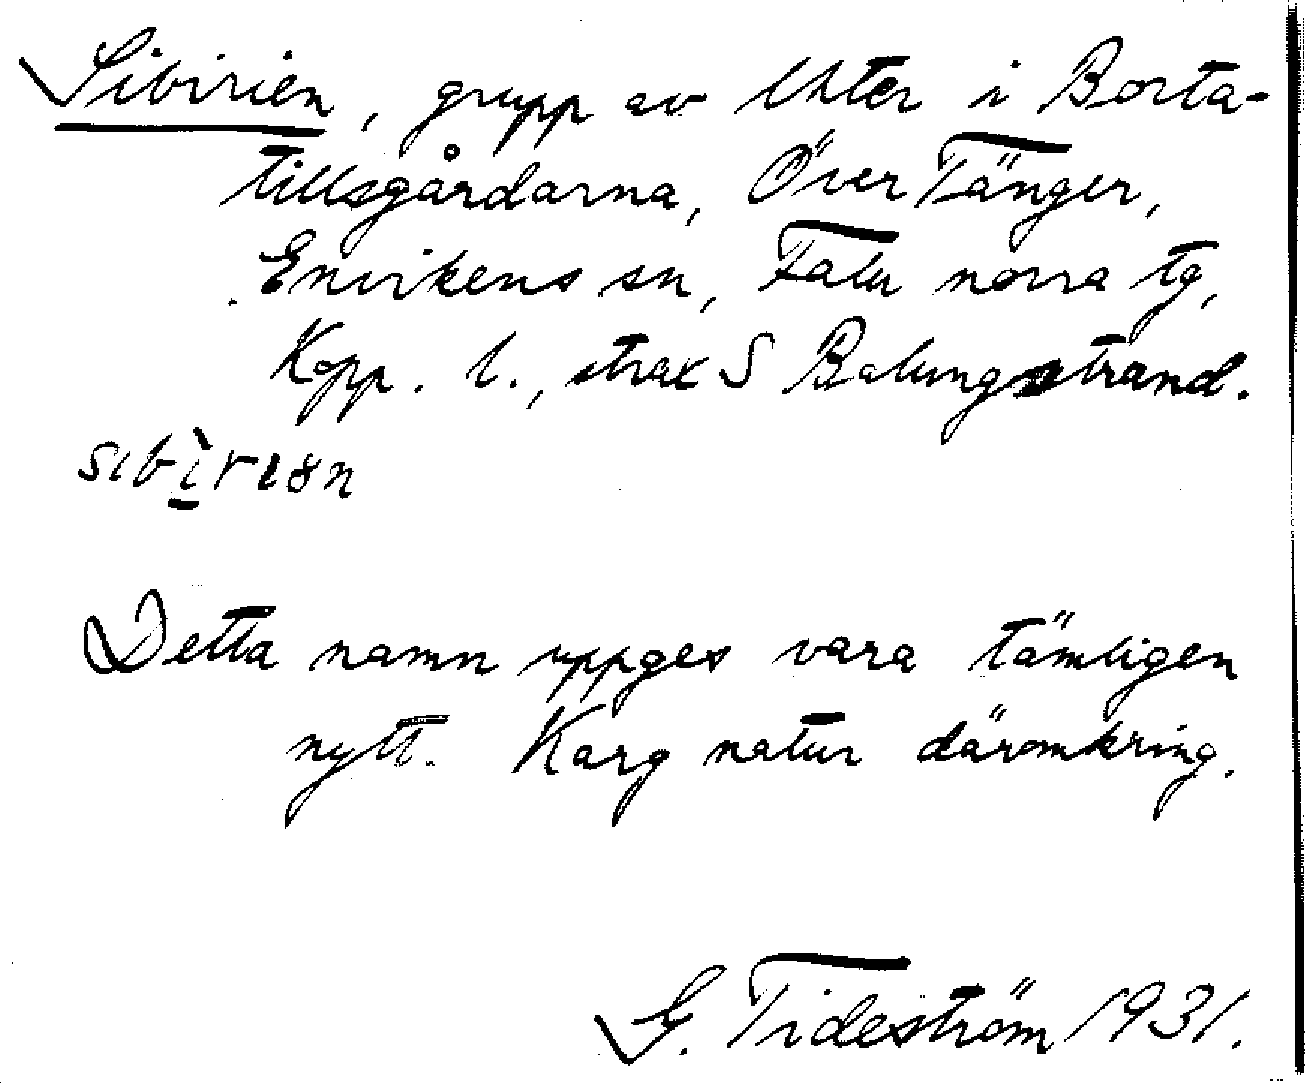 Sibirien, grupp av lhter i Borta-
tillsgårdarna, Över Tänger,
Envikens sn, Falu norra tg,
Kopp. l., strax S Balungstrand.
sibìriən
Detta namn uppges vara tämligen
nytt. Karg natur däromkring.
G. Tideström 1931.